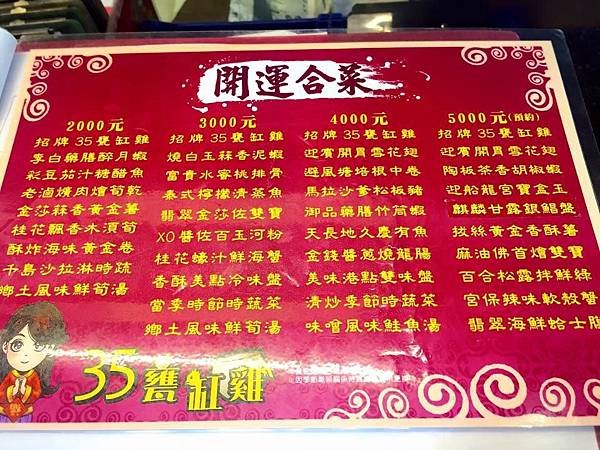 開運合菜
2000元
招牌35甕缸雞
李白藥膳醉月蝦
彩豆茄汁糖醋魚
老滷燒肉燴筍乾
金莎蒜香黃金薯
桂花飄香木須筍
酥炸海味黃金卷
千島沙拉淋時蔬
鄉土風味鮮筍湯
3000元
招牌35甕缸雞
燒白玉蒜香泥蝦
富貴水蜜桃排骨
泰式檸檬清蒸魚
翡翠金莎佐雙寶
XO醬佐百玉河粉
桂花蠔汁鮮海蟹
香酥美點冷味盤
當季時節時蔬菜
鄉土風味鮮筍湯
4000元
招牌35甕缸雞
迎賓開胃雪花翅
避風塘培根中卷
馬拉沙爹松板豬
御品藥膳竹筒蝦
天長地久慶有魚
金錢醬蔥燒龍腸
美味港點雙味盤
清炒季節時蔬菜
味噌風味鮭魚湯
5000元(預約)
招牌35甕缸雞
迎賓開胃雪花翅
陶板茶香胡椒蝦
迎船龍宮寶盒玉
麒麟甘露銀鯧盤
拔絲黃金香酥薯
麻油佛首燴雙寶
百合松露拌鮮綠
宮保辣味軟殼蟹
翡翠海鮮蛤士
35甕缸雞